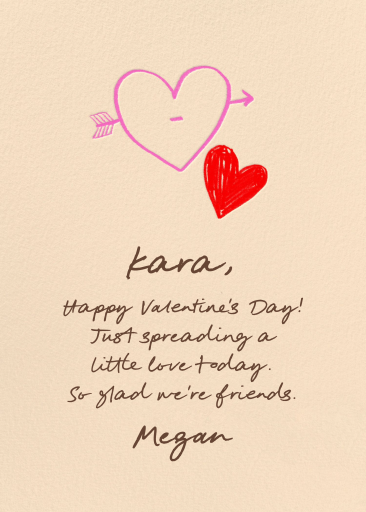 Kara,
Happy Valentine's Day!
Just spreading a
little love today.
So glad we're friends.
Megan